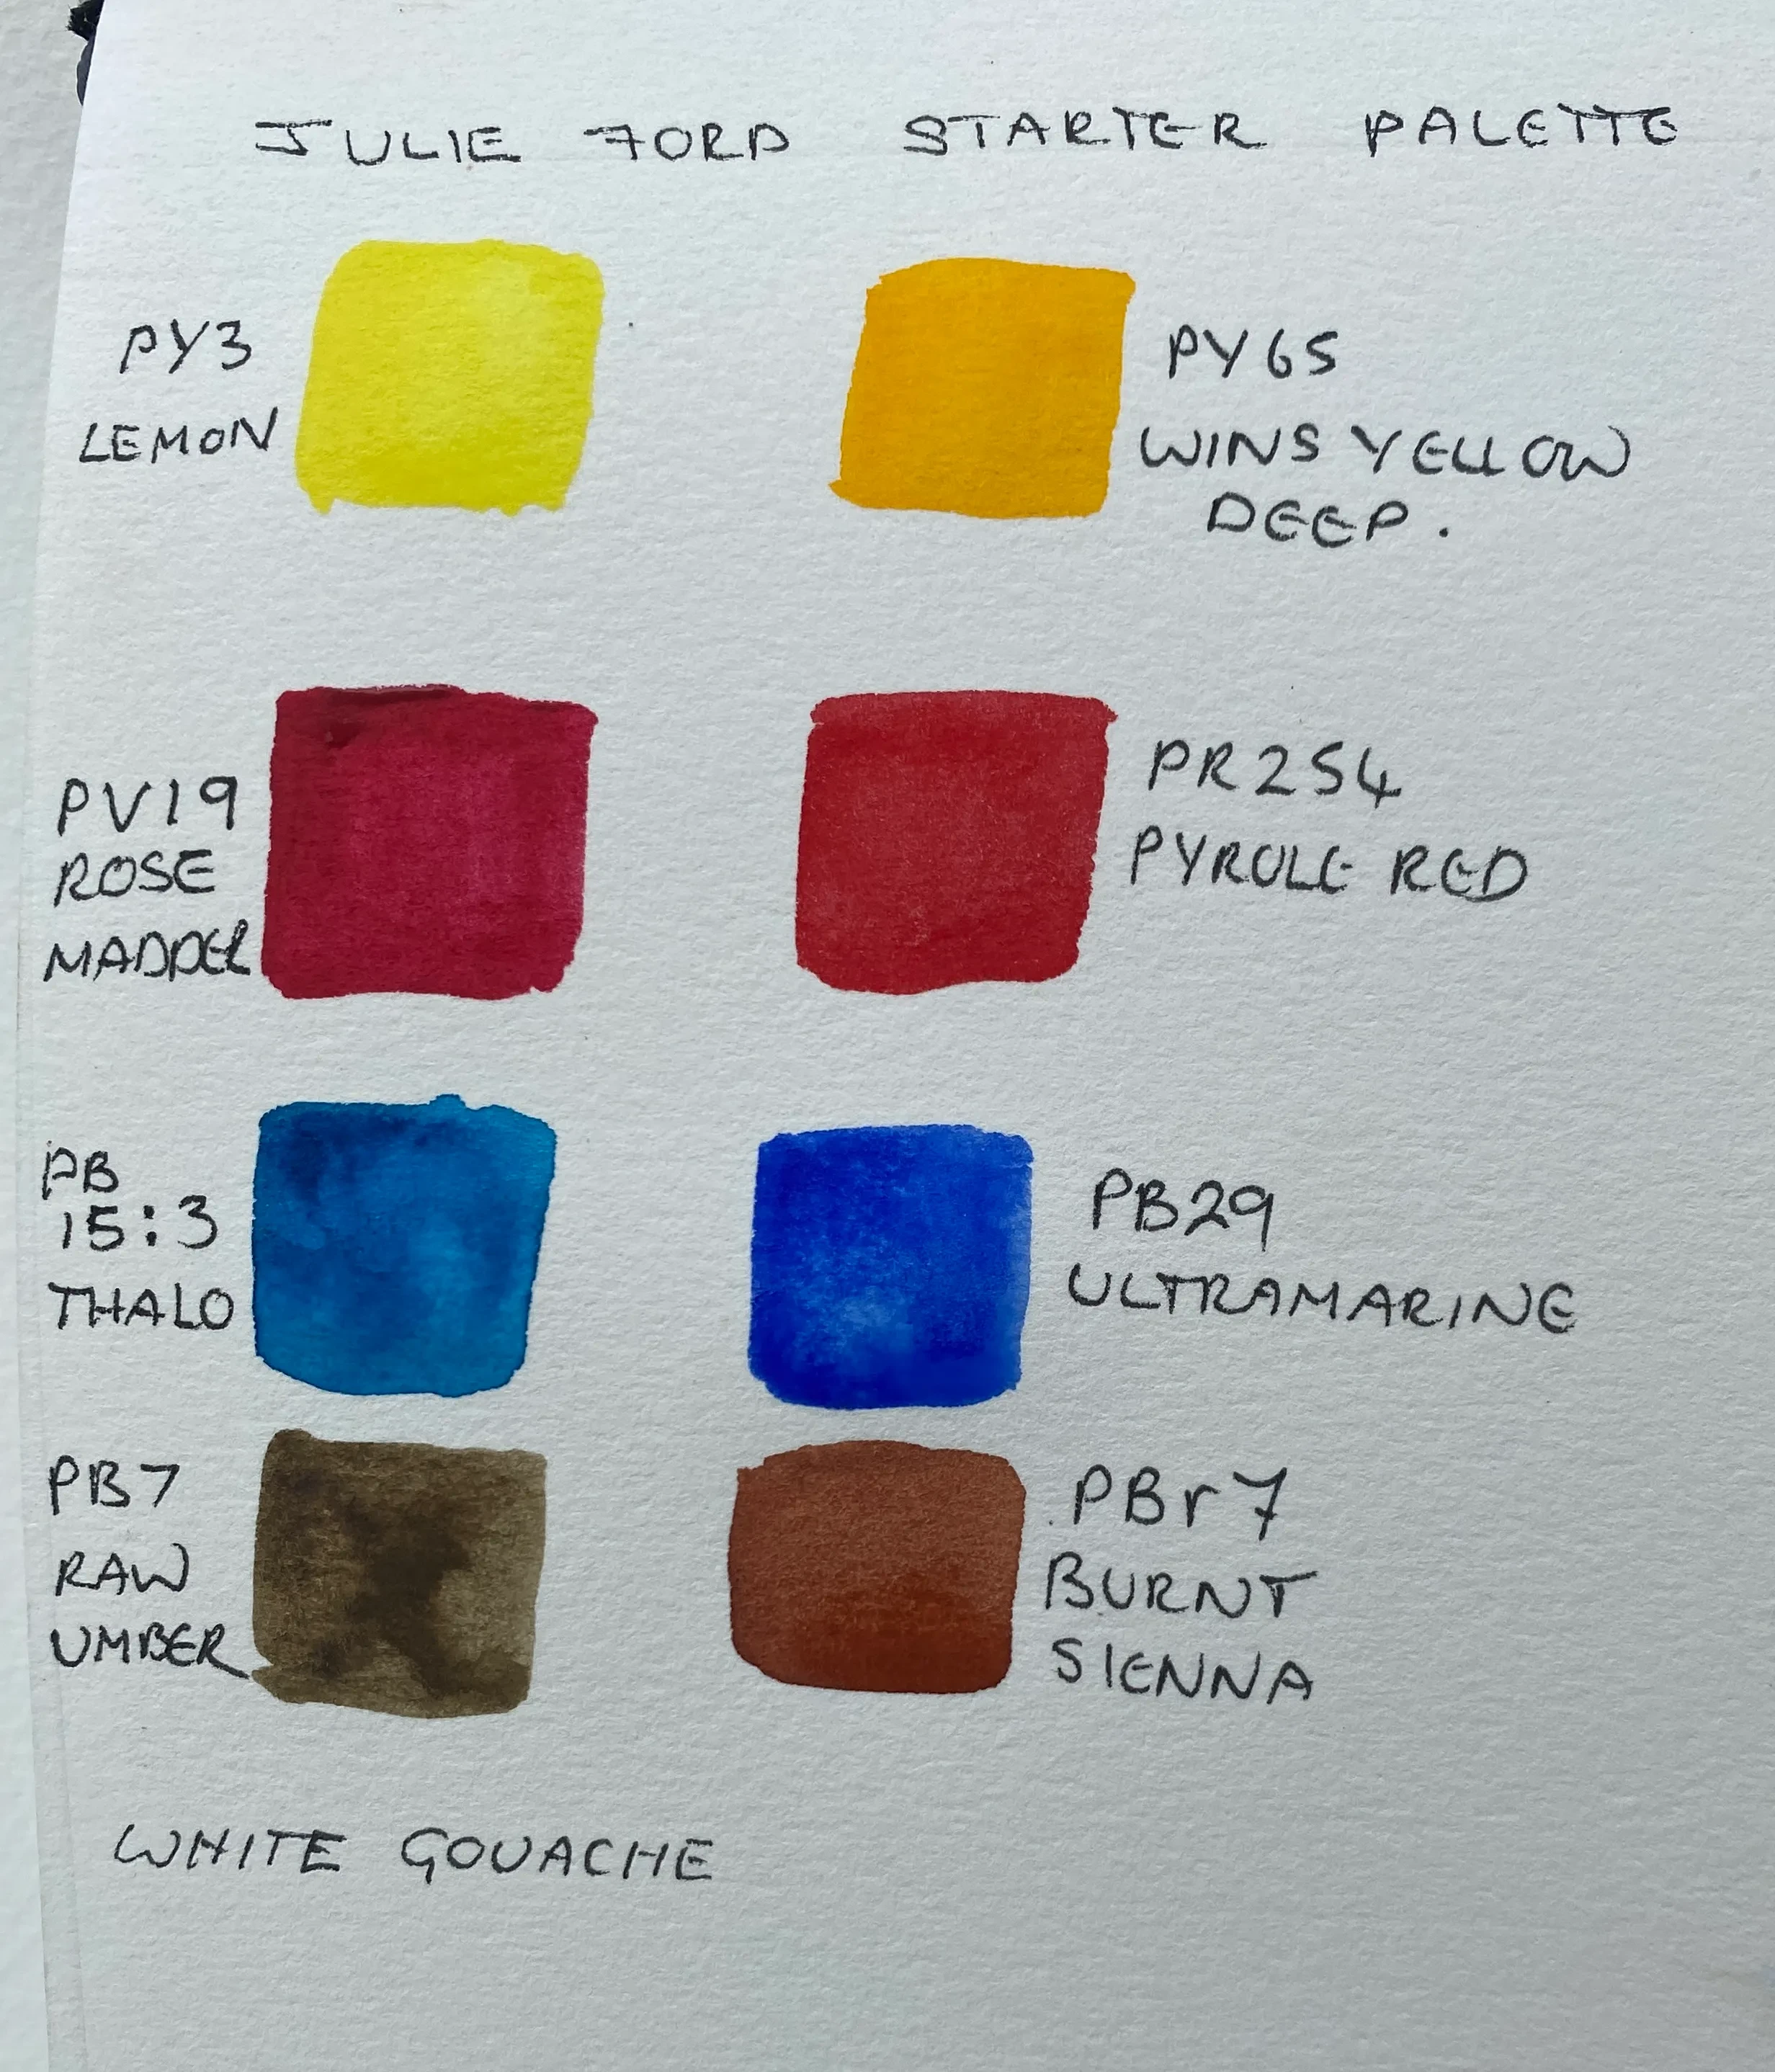 JULIE FORD STARTER PALETTE
PY3
LEMON
PY65
WINS YELLOW
DEEP.
PV19
ROSE
MADDER
PR254
PYROLE RED
PB
15:3
THALO
PB29
ULTRAMARINE
PB7
RAW
UMBER
PBr7
BURNT
SIENNA
WHITE GOUACHE